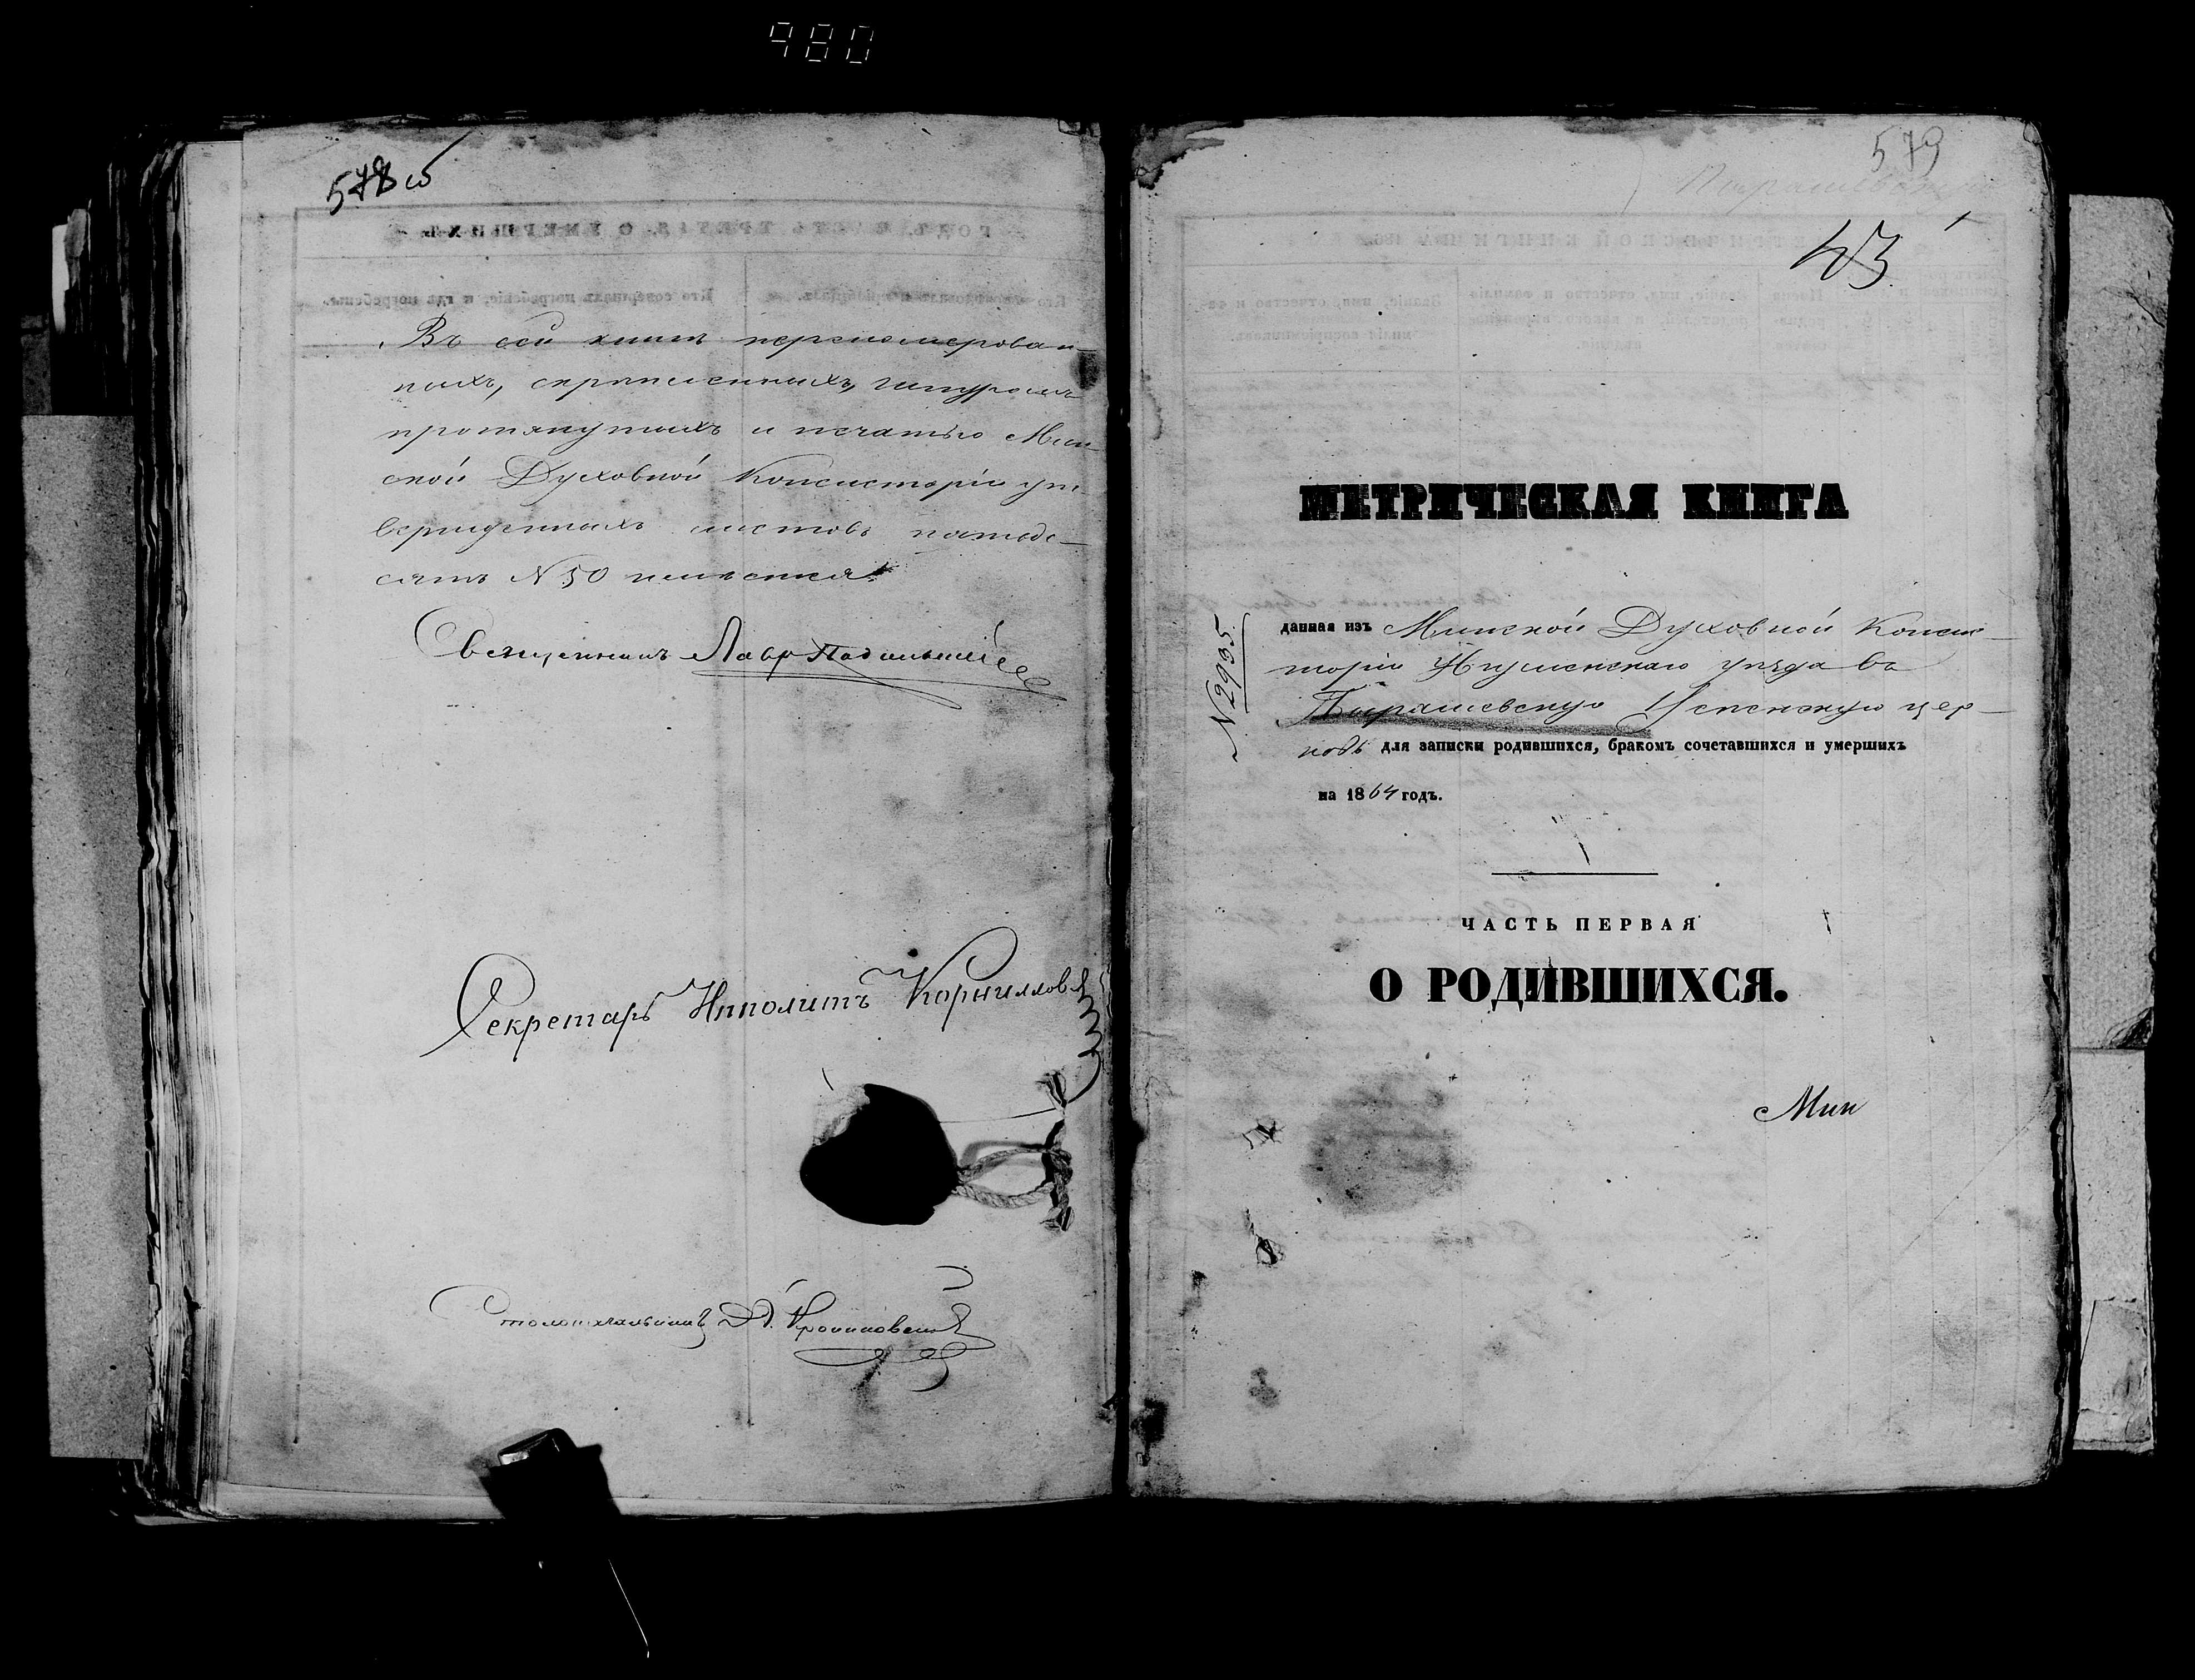 980
578 об
Въ сей книгѣ перенумерован-
ныхъ, скрѣпленныхъ, шнуромъ
протянутыхъ и печатью Мин-
ской Духовной Консисторіи ут-
вержденныхъ листовъ пятьде-
сятъ N 50 имѣется
Священникъ Лавр
Секретарь Ипполитъ Корнилловъ
Столоначальникъ
579
43
МЕТРИЧЕСКАЯ КНИГА
N 2935
данная изъ Минской Духовной Консис-
торіи Игуменскаго уѣзда въ
Успенскую цер-
ковь для записки родившихся, бракомъ сочетавшихся и умершихъ
на 1864 годъ.
ЧАСТЬ ПЕРВАЯ
О РОДИВШИХСЯ.
Мин